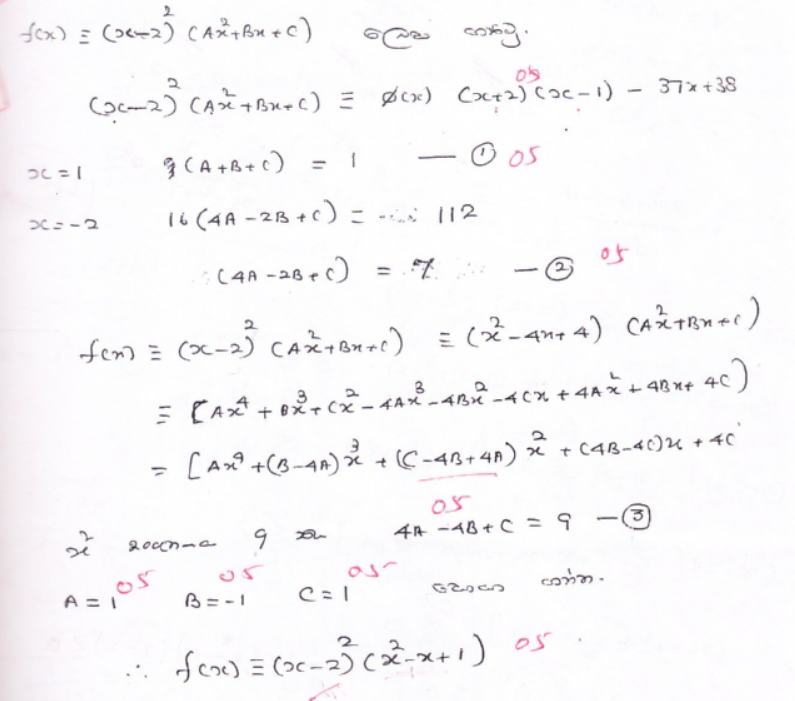 f(x) ≡ (x-2)² (Ax²+Bx+C) ලෙස ගනිමු.
05
(x-2)² (Ax²+Bx+C) ≡ ø(x) (x+2)(x-1) - 37x+38
x=1 (A+B+C) = 1 — ① 05
x=-2 16(4A-2B+C) = 112
(4A-2B+C) = 7 — ② 05
f(x) ≡ (x-2)² (Ax²+Bx+C) ≡ (x²-4x+4) (Ax²+Bx+C)
≡ [Ax⁴ + Bx³ + Cx² - 4Ax³ - 4Bx² - 4Cx + 4Ax² + 4Bx + 4C)
= [Ax⁴ + (B-4A)x³ + (C-4B+4A)x² + (4B-4C)x + 4C
05
x² 9 4A-4B+C = 9 — ③
A = 1 05 B = -1 05 C = 1 05
∴ f(x) ≡ (x-2)² (x²-x+1) 05